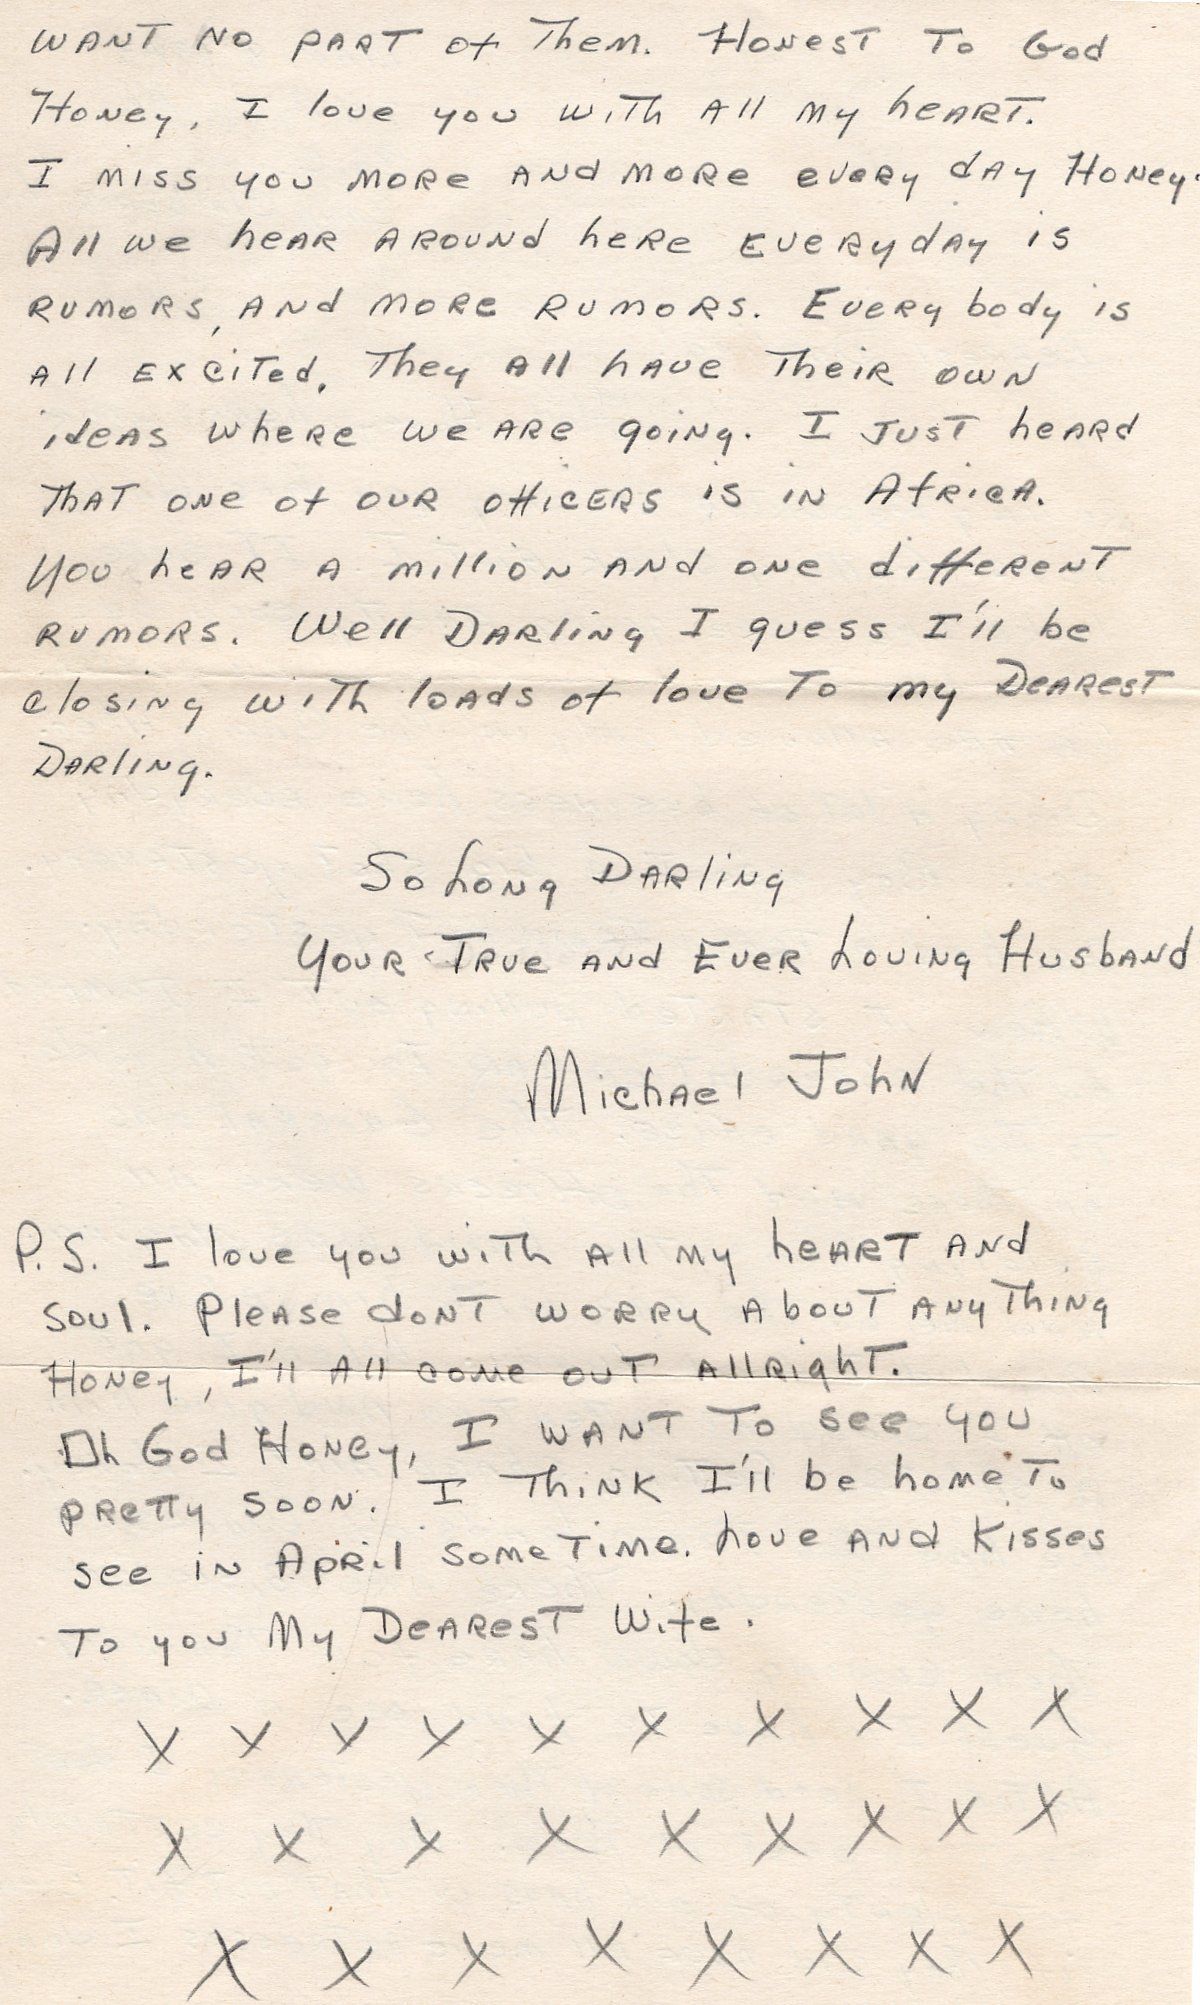 want no part of them. Honest to God
Honey, I love you with all my heart.
I miss you more and more every day Honey.
All we hear around here everyday is
rumors, and more rumors. Everybody is
all excited, They all have their own
ideas where we are going. I just heard
that one of our officers is in Africa.
You hear a million and one different
rumors. Well Darling I guess I'll be
closing with loads of love to my Dearest
Darling.
So Long Darling
Your True and Ever Loving Husband
Michael John
P.S. I love you with all my heart and
soul. Please dont worry about anything
Honey, I'll all come out allright.
Oh God Honey, I want to see you
pretty soon. I think I'll be home to
see in April sometime. Love and Kisses
to you My Dearest Wife.
X X X X X X X X X X
X X X X X X X X X
X X X X X X X X